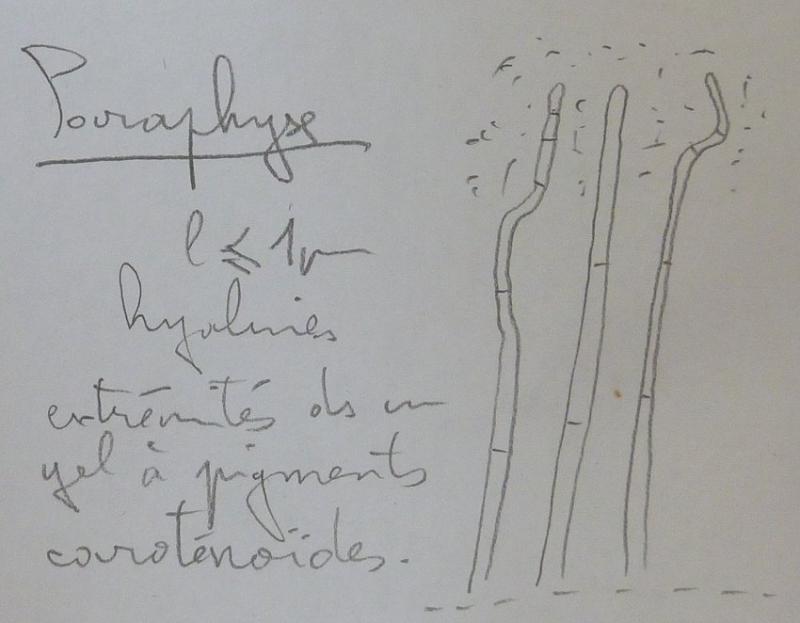 Paraphyse
l ⩽ 1µ
hyalines
extrémités ds un
gel à pigments
caroténoïdes.